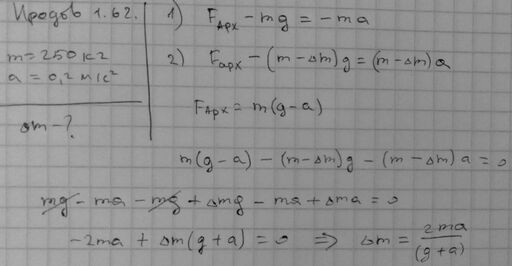 Иродов 1.62.
m = 250 кг
a = 0,2 м/с²
Δm - ?
1) F_Арх - mg = -ma
2) F_арх - (m - Δm)g = (m - Δm)a
F_Арх = m(g - a)
m(g - a) - (m - Δm)g - (m - Δm)a = 0
mg - ma - mg + Δmg - ma + Δma = 0
-2ma + Δm(g + a) = 0 ⇒ Δm = 2ma/(g + a)